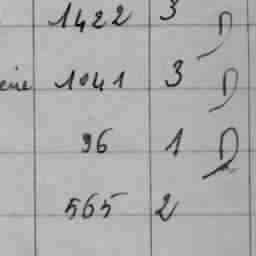 1422 3 D
1041 3 D
96 1 D
565 2